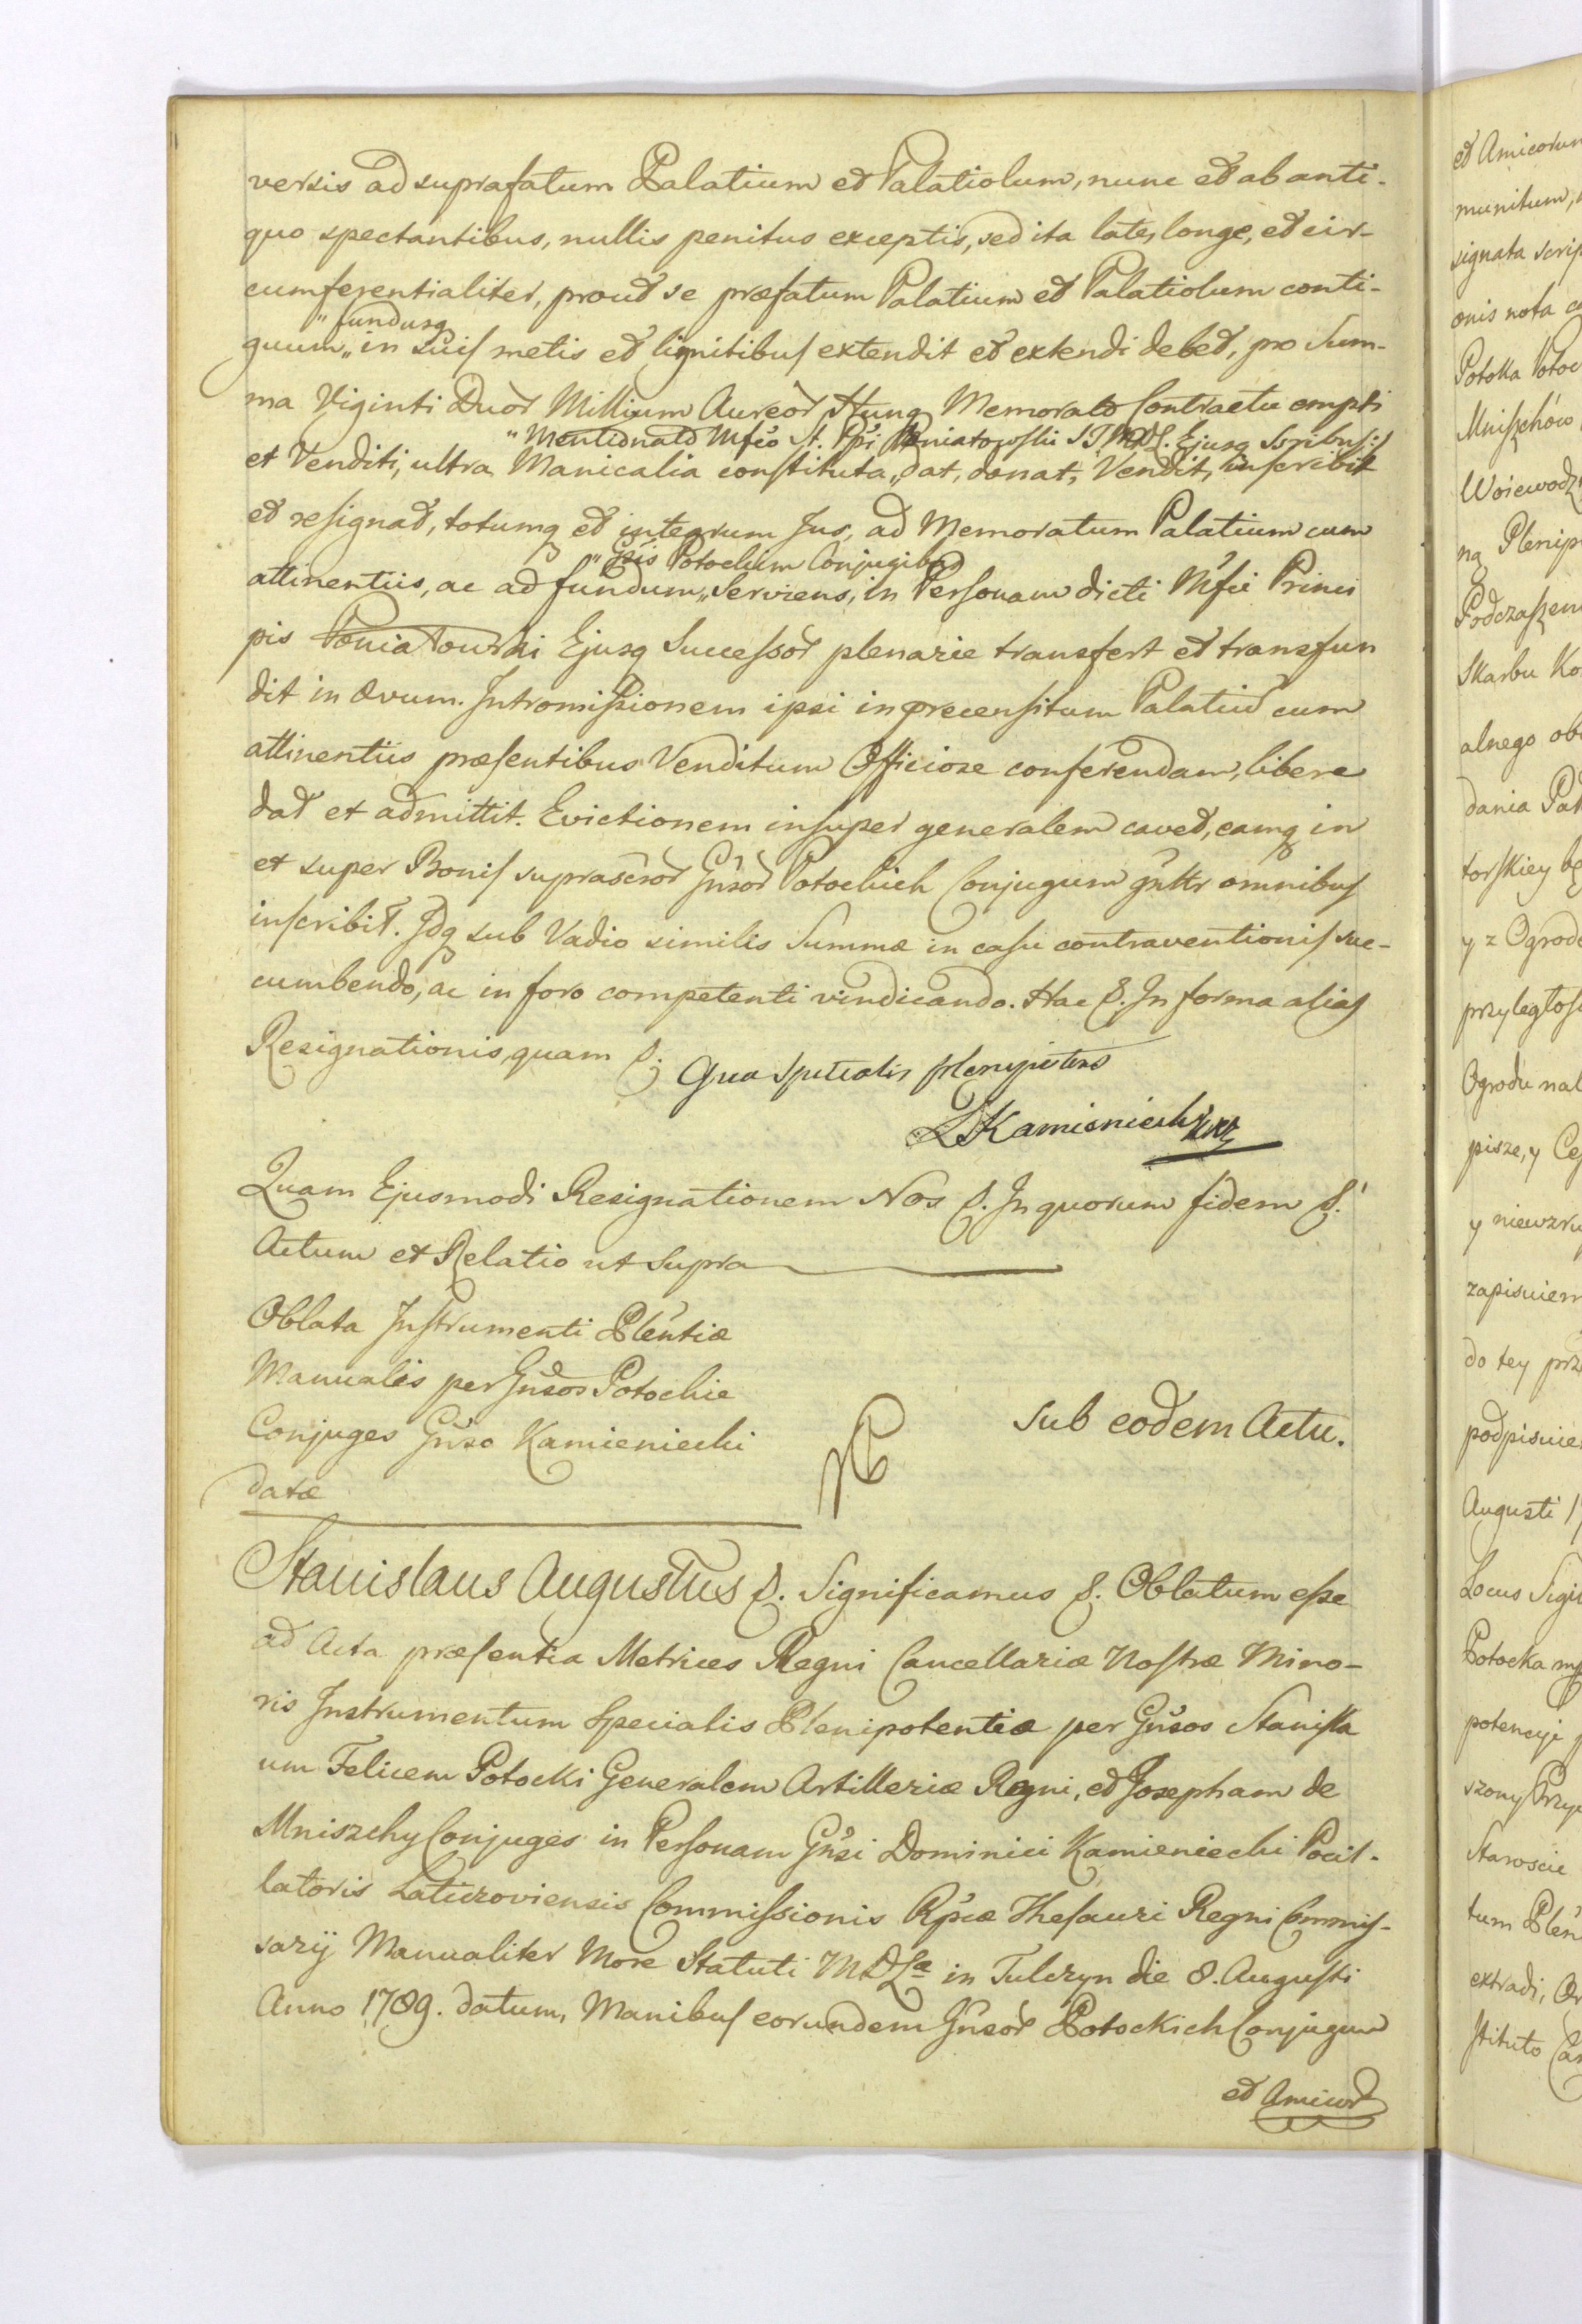 versis ad suprafatum Palatium et Palatiolum, nunc et ab anti-
quo spectantibus, nullis penitus exceptis, sed ita late, longe, et cir-
cumferentialiter, prout se præfatum Palatium et Palatiolum conti-
" fundusq
guum „ in suis metis et limitibus extendit et extendi debet, pro Sum-
ma Viginti Duor Millium Aureor Hung Memorato Contractu empti
" Mentionato Mfco St. Ppi Poniatowski Ejusq Ssribus
et Venditi, ultra Manicalia constituta „ dat, donat, Vendit, inscribit
et resignat, totumq et integrum Jus, ad Memoratum Palatium cum
" Gsis Potockim Conjugibus
attinentiis, ac ad fundum „ Serviens, in Personam dicti Mfci Princi
pis Poniatowski Ejusq Successor plenarie transfert et transfun
dit in ævum. Intromissionem ipsi in præcensitum Palatiu cum
attinentiis præsentibus Venditum Officiose conferendam, libere
dat et admittit. Evictionem insuper generalem cavet, eamq in
et super Bonis suprascror Gnsor Potockich Conjugum gnltr omnibus
inscribit. Idq sub Vadio similis Summæ in casu contraventionis suc-
cumbendo, ac in foro competenti vindicando. Hac &. In forma alias
Resignationis, quam &.
Qua specialis plenipotens
D Kamieniecki
Quam Ejusmodi Resignationem Nos &. In quorum fidem &.
Actum et Relatio ut supra
Oblata Instrumenti Plentiæ
Manualis per Gnsos Potockie
Conjuges Gnso Kamieniecki
datæ
sub eodem Actu.
Stanislaus Augustus &. Significamus &. Oblatum esse
ad Acta præsentia Metrices Regni Cancellariæ Nostræ Mino-
ris Instrumentum Specialis Plenipotentiæ per Gnsos Stanisla
um Felicem Potocki Generalem Artilleriæ Regni, et Josepham de
Mniszchy Conjuges in Personam Gnsi Dominici Kamieniecki Pocil-
latoris Laticzoviensis Commissionis Rpcæ Thesauri Regni Commis-
sarij Manualiter More Statuti MDLæ in Tulczyn die 8. Augusti
Anno 1789. datum, Manibus eorundem Gnsor Potockich Conjugum
et Amicor
et Amicorum
munitum,
signata scrip
onis nota
Potocka Potoc
Mniszchow
Woiewodz
ną Plenip
Podczaszem
Skarbu Ko
alnego ob
dania Pał
torskiey bę
y z Ogrode
przyległoś
Ogrodu nal
pisze, y
y niewzru
zapisuiem
do tey prz
podpisuie
Augusti 1
Locus Sigi
Potocka mp
potencyi
szony Przy
Staroscie
tum Plen
extradi,
stituto